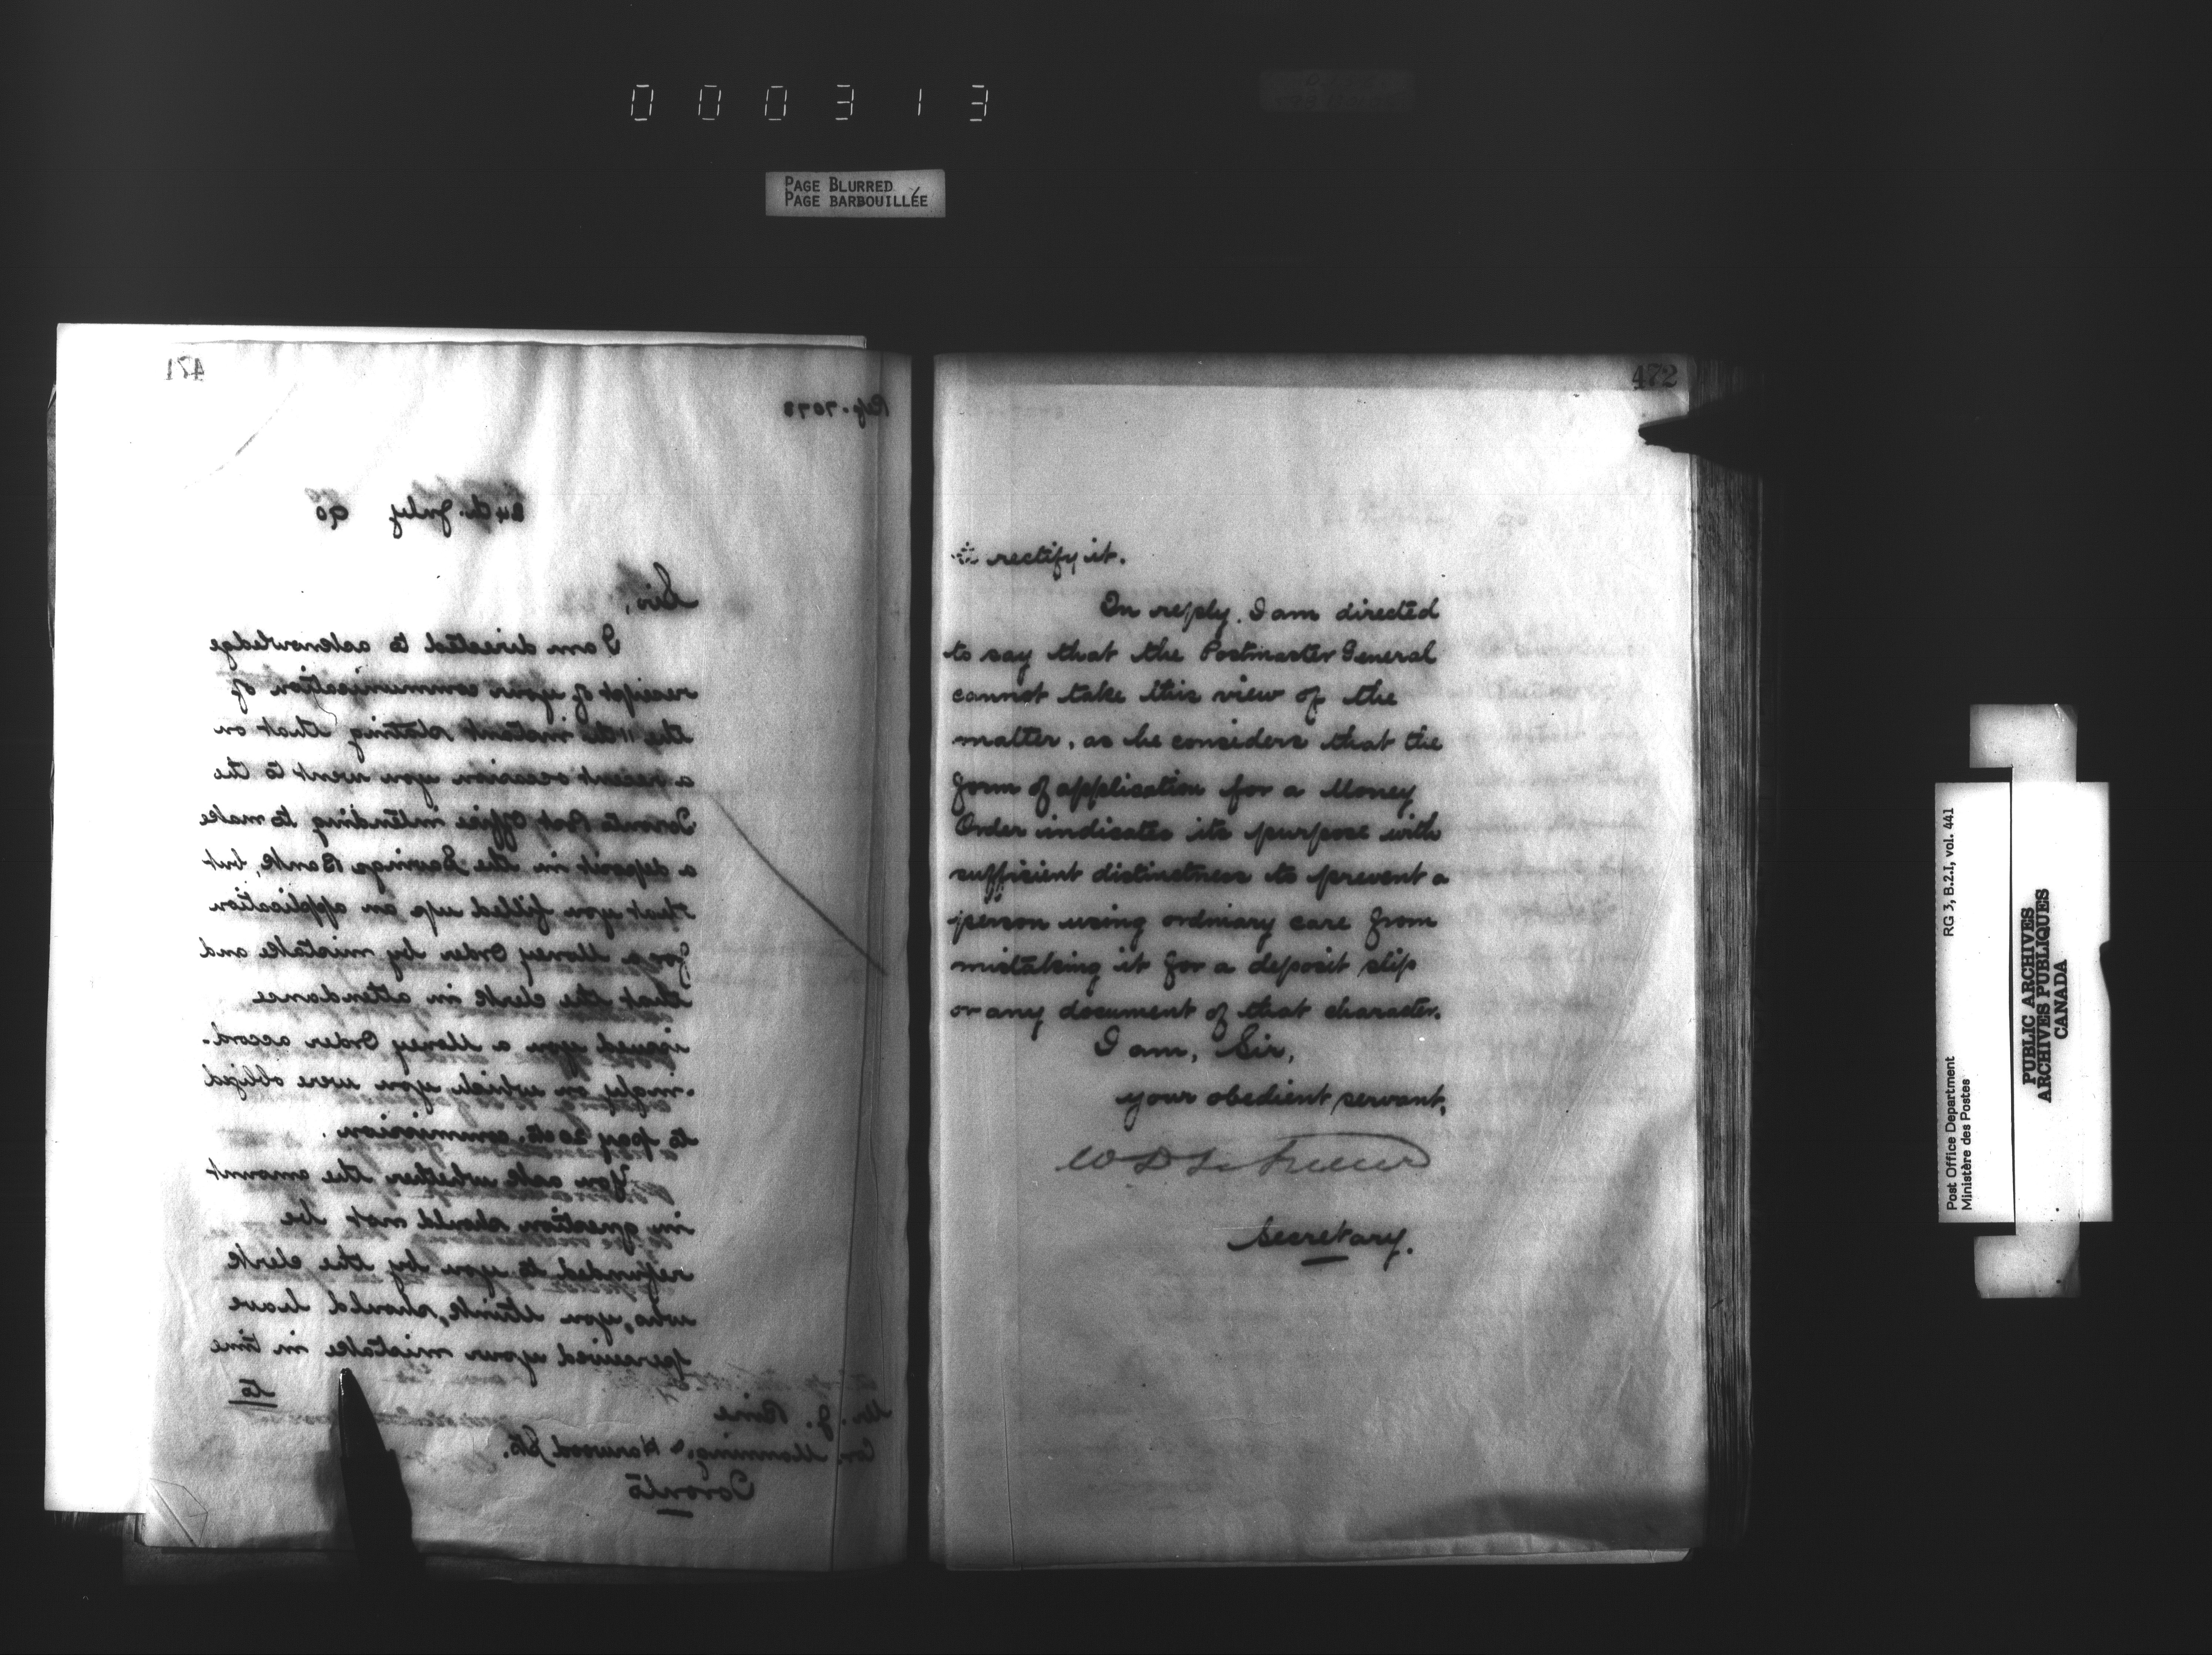 000313
PAGE BLURRED
PAGE BARBOUILLÉE
471
Ref. 7073
24th July 90
Sir,
I am directed to acknowledge
receipt of your communication of
the 11th instant stating that on
a recent occasion you went to the
Toronto Post Office intending to make
a deposit in the Savings Bank, but
that you filled up an application
for a Money Order by mistake and
that the clerk in attendance
issued you a Money Order accord-
-ingly on which you were obliged
to pay 20 cts.
You ask whether the amount
in question should not be
refunded to you by the clerk
who, you think, should have
perceived your mistake in time
to
Mr. J.
Cor. Manning & Harwood Sts.
Toronto
472
rectify it.
In reply, I am directed
to say that the Postmaster General
cannot take this view of the
matter, as he considers that the
form of application for a Money
Order indicates its purpose with
sufficient distinctness to prevent a
person using ordinary care from
mistaking it for a deposit slip
or any document of that character.
I am, Sir,
your obedient servant,
Secretary.
Post Office Department RG 3, B.2.I, vol. 441
Ministère des Postes
PUBLIC ARCHIVES
ARCHIVES PUBLIQUES
CANADA